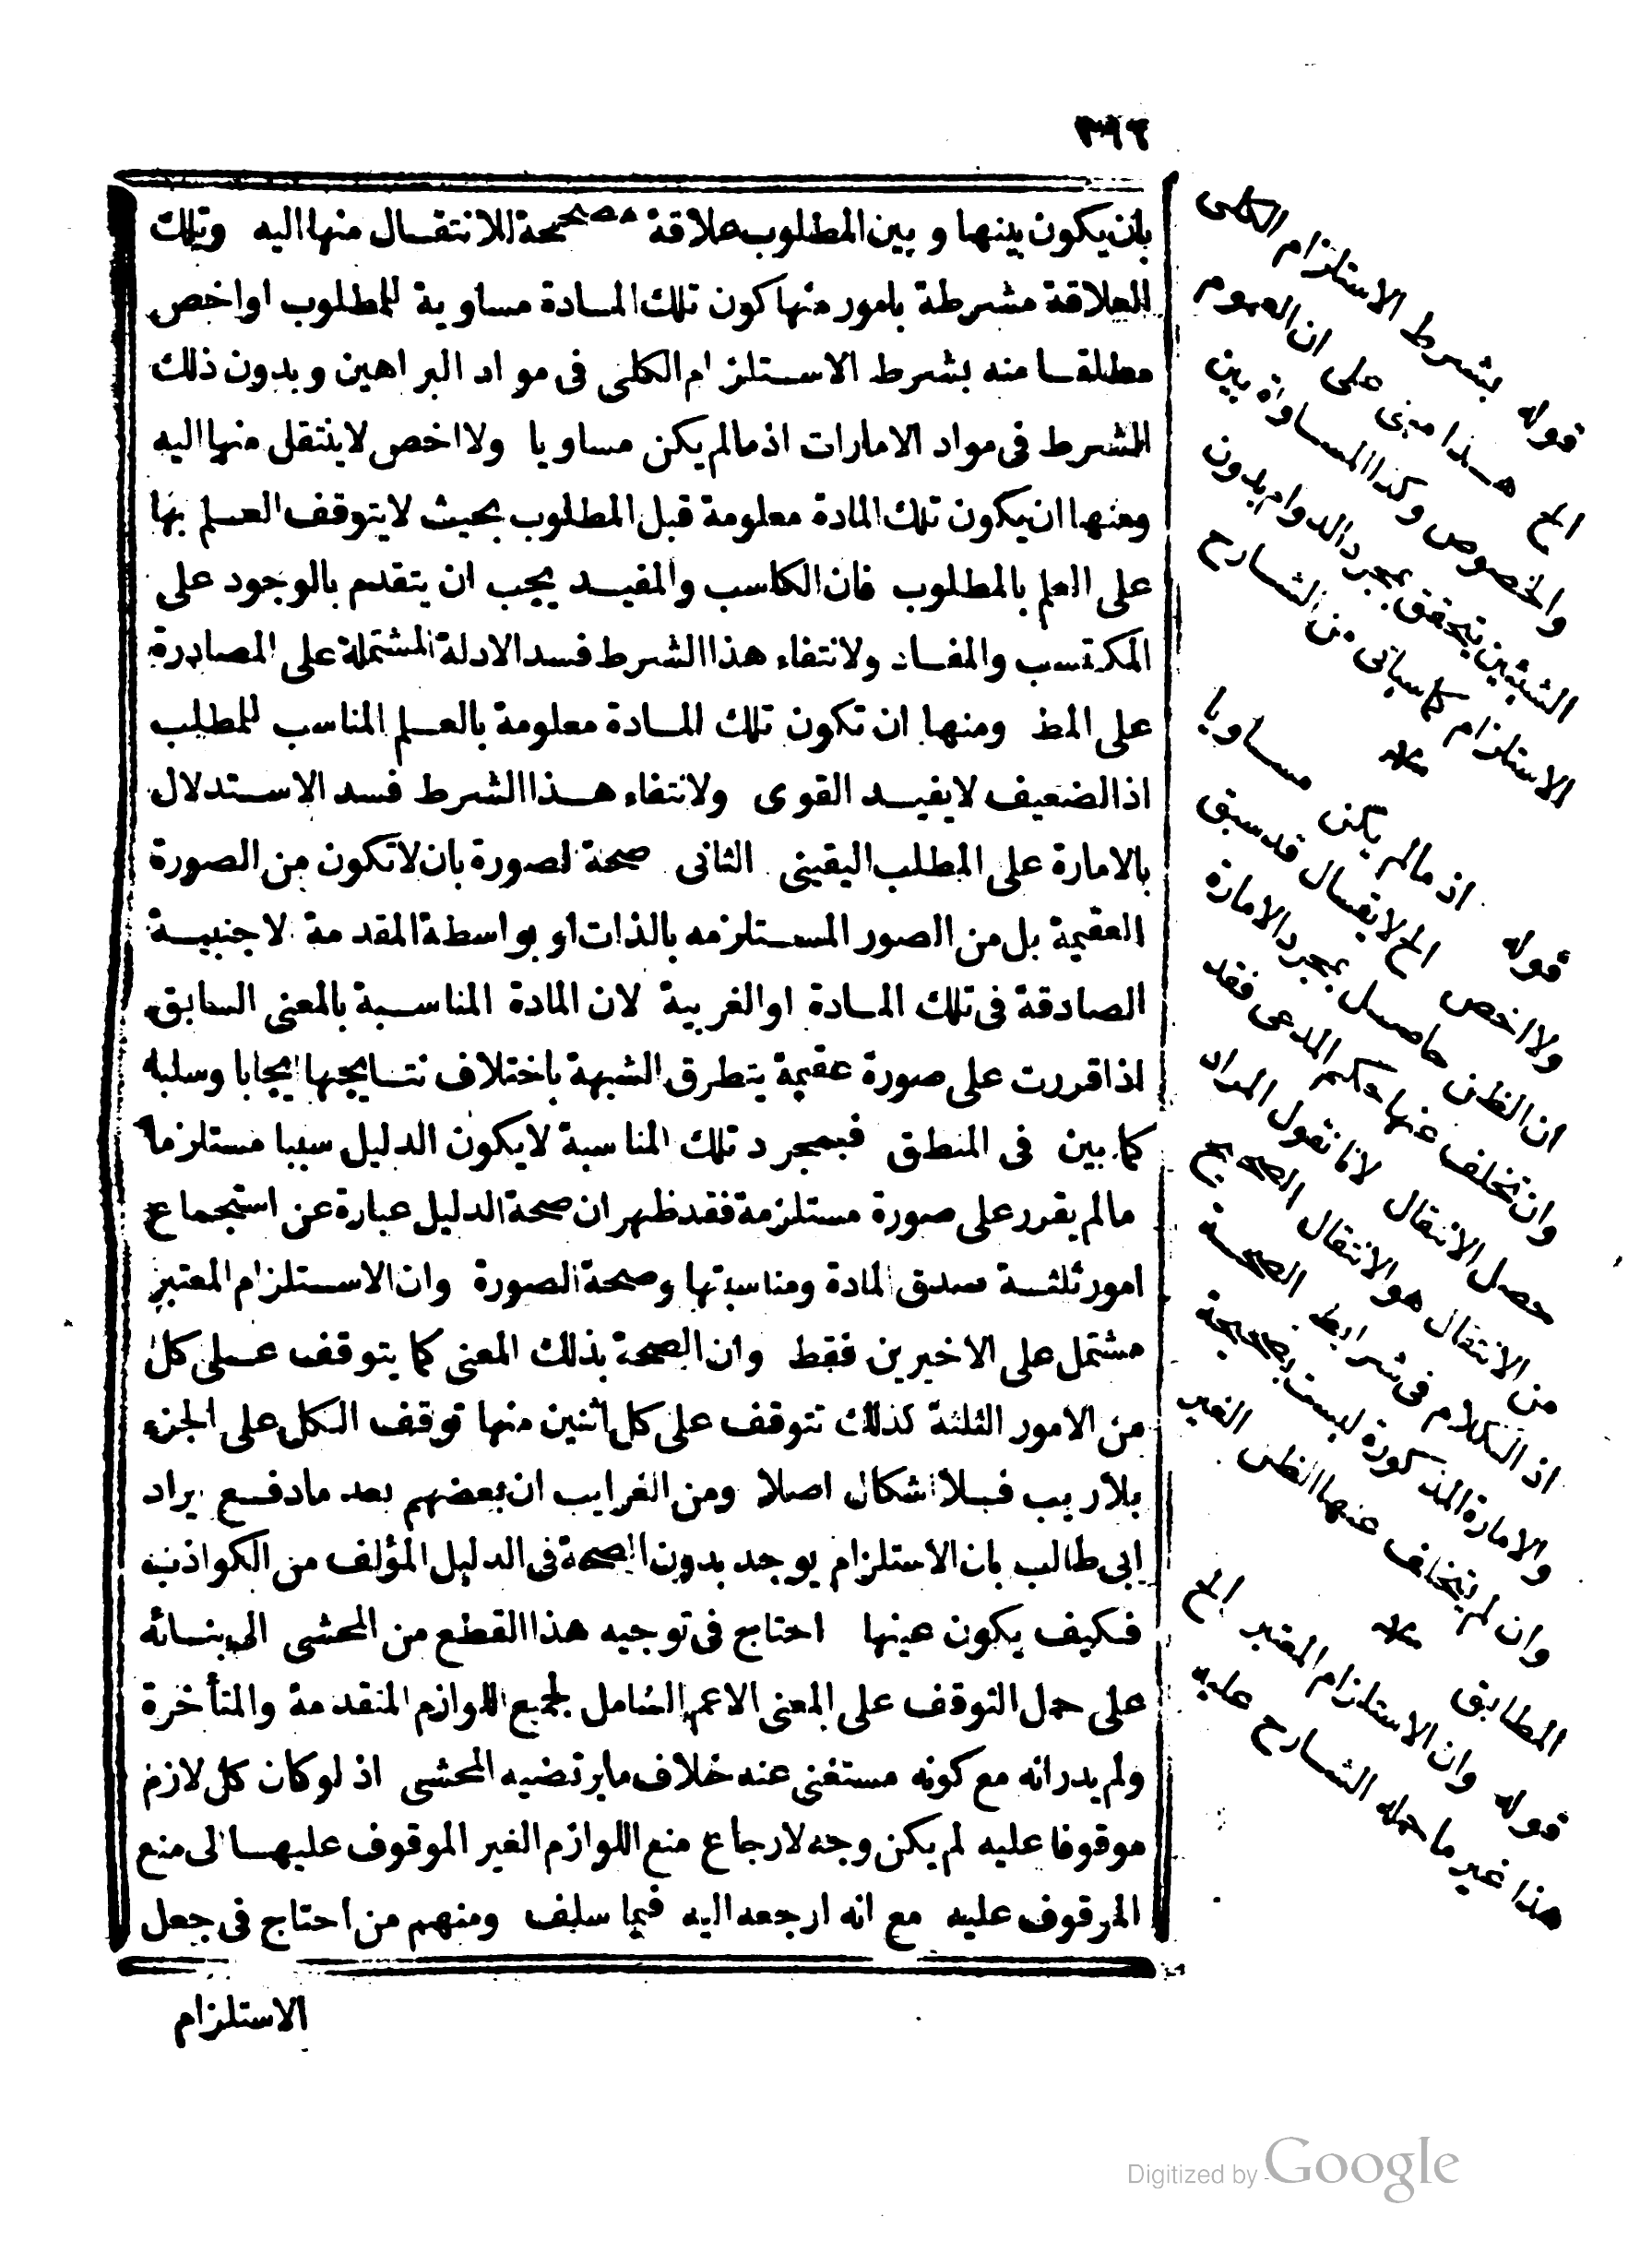 ٣٩٢
بان يكون بينها وبين المطلوب علاقة مصححة للانتقال منها اليه وتلك
العلاقة مشرطة بامور منها كون تلك المادة مساوية للمطلوب او اخص
مطلقا منه بشرط الاستلزام الكلى فى مواد البراهين وبدون ذلك
الشرط فى مواد الامارات اذ مالم يكن مساويا ولا اخص لاينتقل منها اليه
ومنها ان يكون تلك المادة معلومة قبل المطلوب بحيث لايتوقف العلم بها
على العلم بالمطلوب فان الكاسب والمفيد يجب ان يتقدم بالوجود على
المكتسب والمفاد ولانتفاء هذا الشرط فسد الادلة المشتملة على المصادرة
على المط ومنها ان تكون تلك المادة معلومة بالعلم المناسب للمطلب
اذ الضعيف لايفيد القوى ولانتفاء هذا الشرط فسد الاستدلال
بالامارة على المطلب اليقينى الثانى صحة الصورة بان لاتكون من الصورة
العقيمة بل من الصور المستلزمه بالذات او بواسطة المقدمة الاجنبية
الصادقة فى تلك المادة او الغريبة لان المادة المناسبة بالمعنى السابق
اذا قررت على صورة عقيمة يتطرق الشبهة باختلاف نتايجها ايجابا وسلبا
كما بين فى المنطق فبمجرد تلك المناسبة لايكون الدليل سببا مستلزما
مالم يقرر على صورة مستلزمة فقد ظهر ان صحة الدليل عبارة عن استجماع
امور ثلثة صدق المادة ومناسبتها وصحة الصورة وان الاستلزام المعتبر
مشتمل على الاخيرين فقط وان الصحة بذلك المعنى كما يتوقف على كل
من الامور الثلثة كذلك تتوقف على كل اثنين منها توقف الكل على الجزء
بلا ريب فلا اشكال اصلا ومن الغرايب ان بعضهم بعد مادفع ايراد
ابى طالب بان الاستلزام يوجد بدون الصحة فى الدليل المؤلف من الكواذب
فكيف يكون عينها احتاج فى توجيه هذا القطع من المحشى الى بنائه
على حمل التوقف على المعنى الاعم الشامل لجميع اللوازم المتقدمة والمتأخرة
ولم يدر انه مع كونه مستغنى عنه خلاف مايرتضيه المحشى اذ لوكان كل لازم
موقوفا عليه لم يكن وجه لارجاع منع اللوازم الغير الموقوف عليها الى منع
الموقوف عليه مع انه ارجعه اليه فيما سلف ومنهم من احتاج فى جعل
الاستلزام
قوله بشرط الاستلزام الكلى
الخ هذا مبنى على ان العموم
والخصوص وكذا المساواة بين
الشيئين يتحقق بمجرد الدوام بدون
الاستلزام كما سيأتى من الشارح
منه
قوله اذ مالم يكن مساويا
ولا اخص الخ لايقال قد سبق
ان الظن حاصل بمجرد الامارة
وان تخلف عنها حكم المدعى فقد
حصل الانتقال لانا نقول المراد
من الانتقال هو الانتقال الصحيح
اذ الكلام فى شرايط الصحة
والامارة المذكورة ليست بصحيحة
وان لم يتخلف عنها الظن الغير
المطابق منه
قوله وان الاستلزام المعتبر الخ
هذا غير ما حمله الشارح عليه
Digitized by Google